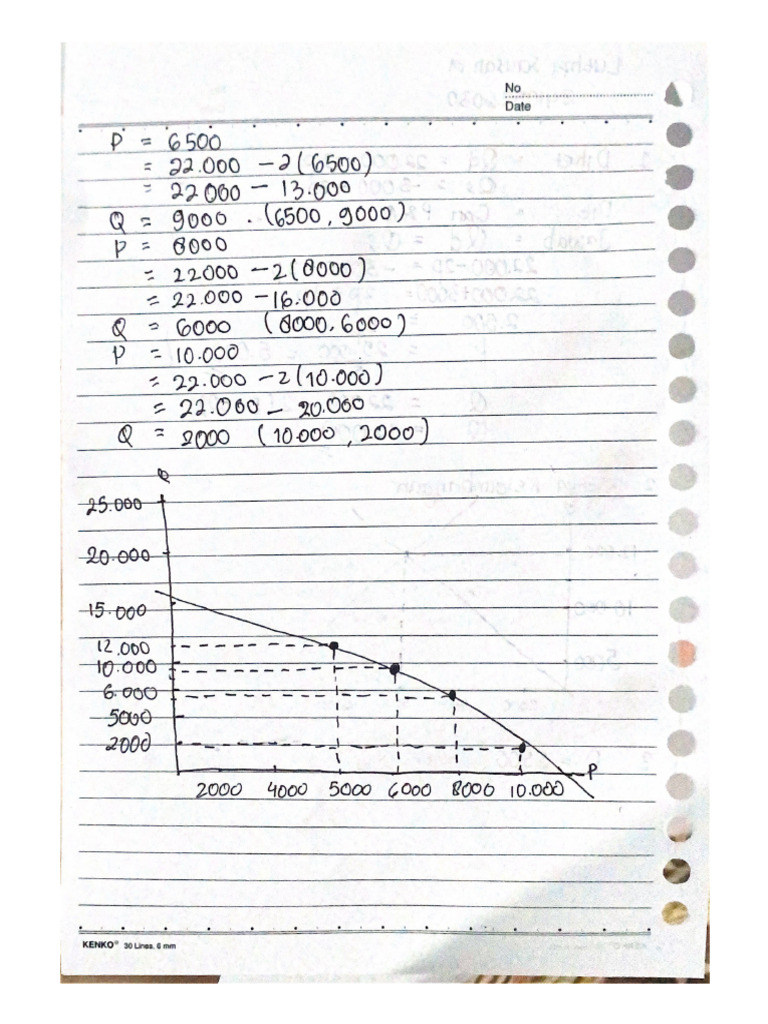 No
Date
P = 6500
= 22.000 - 2(6500)
= 22000 - 13.000
Q = 9000 . (6500, 9000)
P = 8000
= 22000 - 2(8000)
= 22.000 - 16.000
Q = 6000 (8000, 6000)
P = 10.000
= 22.000 - 2(10.000)
= 22.000 - 20.000
Q = 2000 (10.000, 2000)
Q
25.000
20.000
15.000
12.000
10.000
6.000
5000
2000
P
2000 4000 5000 6000 8000 10.000
KENKO® 30 Lines. 6 mm